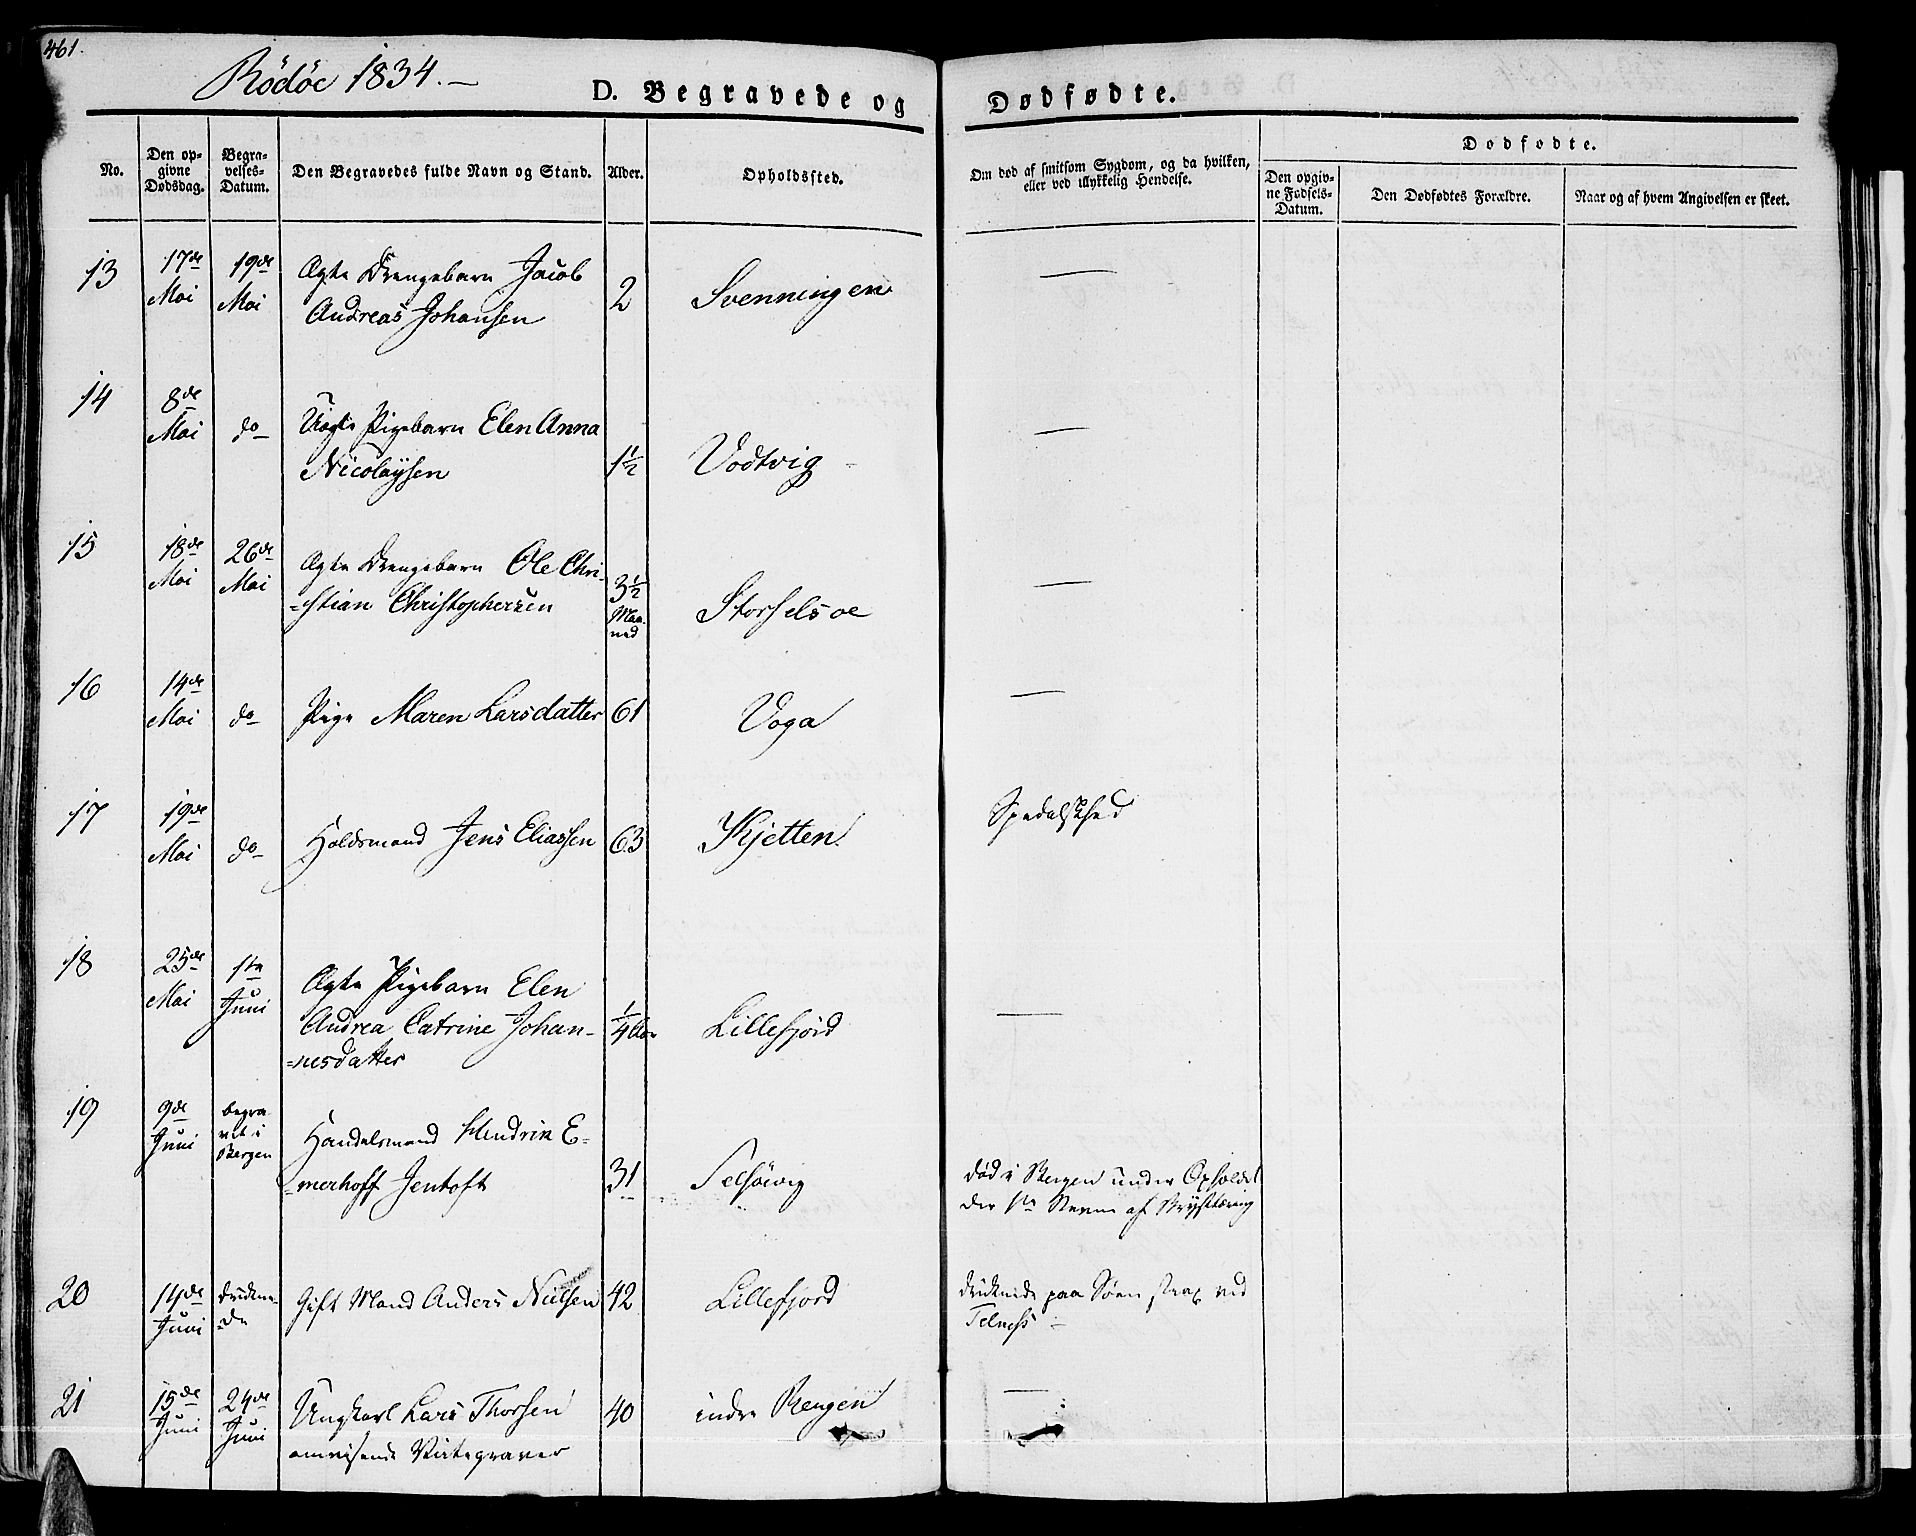 461.
Rödöe 1834.–
D. Begravede og Dødfødte.
No.
Den op-
givne
Dødsdag.
Begra-
velses-
Datum.
Den Begravedes fulde Navn og Stand.
Alder.
Opholdsted.
Om død af smitsom Sygdom, og da hvilken,
eller ved ulykkelig Hendelse.
Dødfødte.
Den opgiv-
ne Fødsels-
Datum.
Den Dødfødtes Forældre.
Naar og af hvem Angivelsen er skeet.
13
17de
Mai
19de
Mai
Ægte Drengebarn Jacob
Andreas Johansen
2
Svenningen
—
14
8de
Mai
do
Uægte Pigebarn Elen Anna
Nicolaysen
1½
Vodtvig
—
15
18de
Mai
26de
Mai
Ægte Drengebarn Ole Chri-
=stian Christophersen
3½
Maa-
ned
Storselsoe
—
16
14de
Mai
do
Pige Maren Larsdatter
61
Voga
—
17
19de
Mai
do
Holdsmand Jens Eliassen
63
Kjetten
Spedalskhed
18
25de
Mai
1ste
Juni
Ægte Pigebarn Elen
Andrea Catrine Johan-
=nesdatter
¼ Aar
Lillefjord
—
19
9de
Juni
begra-
vet i
Bergen
Handelsmand Hendrik E-
=merhoff Jentoft
31
Selsöevig
død i Bergen under Opholdet
der ved Stevne af Brysttæring
20
14de
Juni
druckne-
=de
Gift Mand Anders Nielsen
42
Lillefjord
druknede paa Søen strax ved
Telness –
21
15de
Juni
24de
Juni
Ungkarl Lars Thorsen
omreisende Virtegraver
40
indre Rengen
—